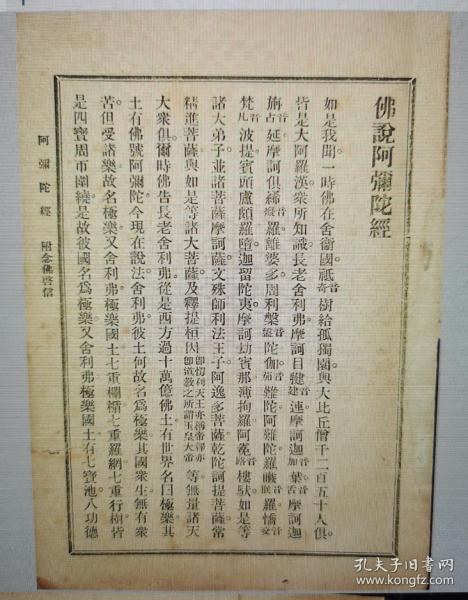 佛說阿彌陀經
如是我聞。一時佛在舍衞國。祇音奇樹給孤獨園。與大比丘僧。千二百五十人俱。
皆是大阿羅漢。衆所知識。長老舍利弗。摩訶目犍音建連。摩訶迦音加葉音舌。摩訶迦
旃音占延。摩訶俱絺音癡羅。離婆多。周利槃音盤陀伽音茄。難陀。阿難陀。羅睺音侯羅。憍音交
梵音凡波提。賓頭盧頗羅墮。迦留陀夷。摩訶劫賓那。薄拘羅。阿㝹音路樓馱。如是等
諸大弟子。並諸菩薩摩訶薩。文殊師利法王子。阿逸多菩薩。乾陀訶提菩薩。常
精進菩薩。與如是等諸大菩薩。及釋提桓因即忉利天王亦稱帝釋亦即道教之所謂玉皇大帝等。無量諸天
大衆俱。爾時佛告長老舍利弗。從是西方過十萬億佛土。有世界名曰極樂。其
土有佛號阿彌陀。今現在說法。舍利弗。彼土何故名爲極樂。其國衆生無有衆
苦。但受諸樂。故名極樂。又舍利弗。極樂國土。七重欄楯。七重羅網。七重行樹。皆
是四寶周帀圍繞。是故彼國名爲極樂。又舍利弗。極樂國土。有七寶池。八功德
阿彌陀經 附念佛啓信
孔夫子旧书网
www.kongfz.com